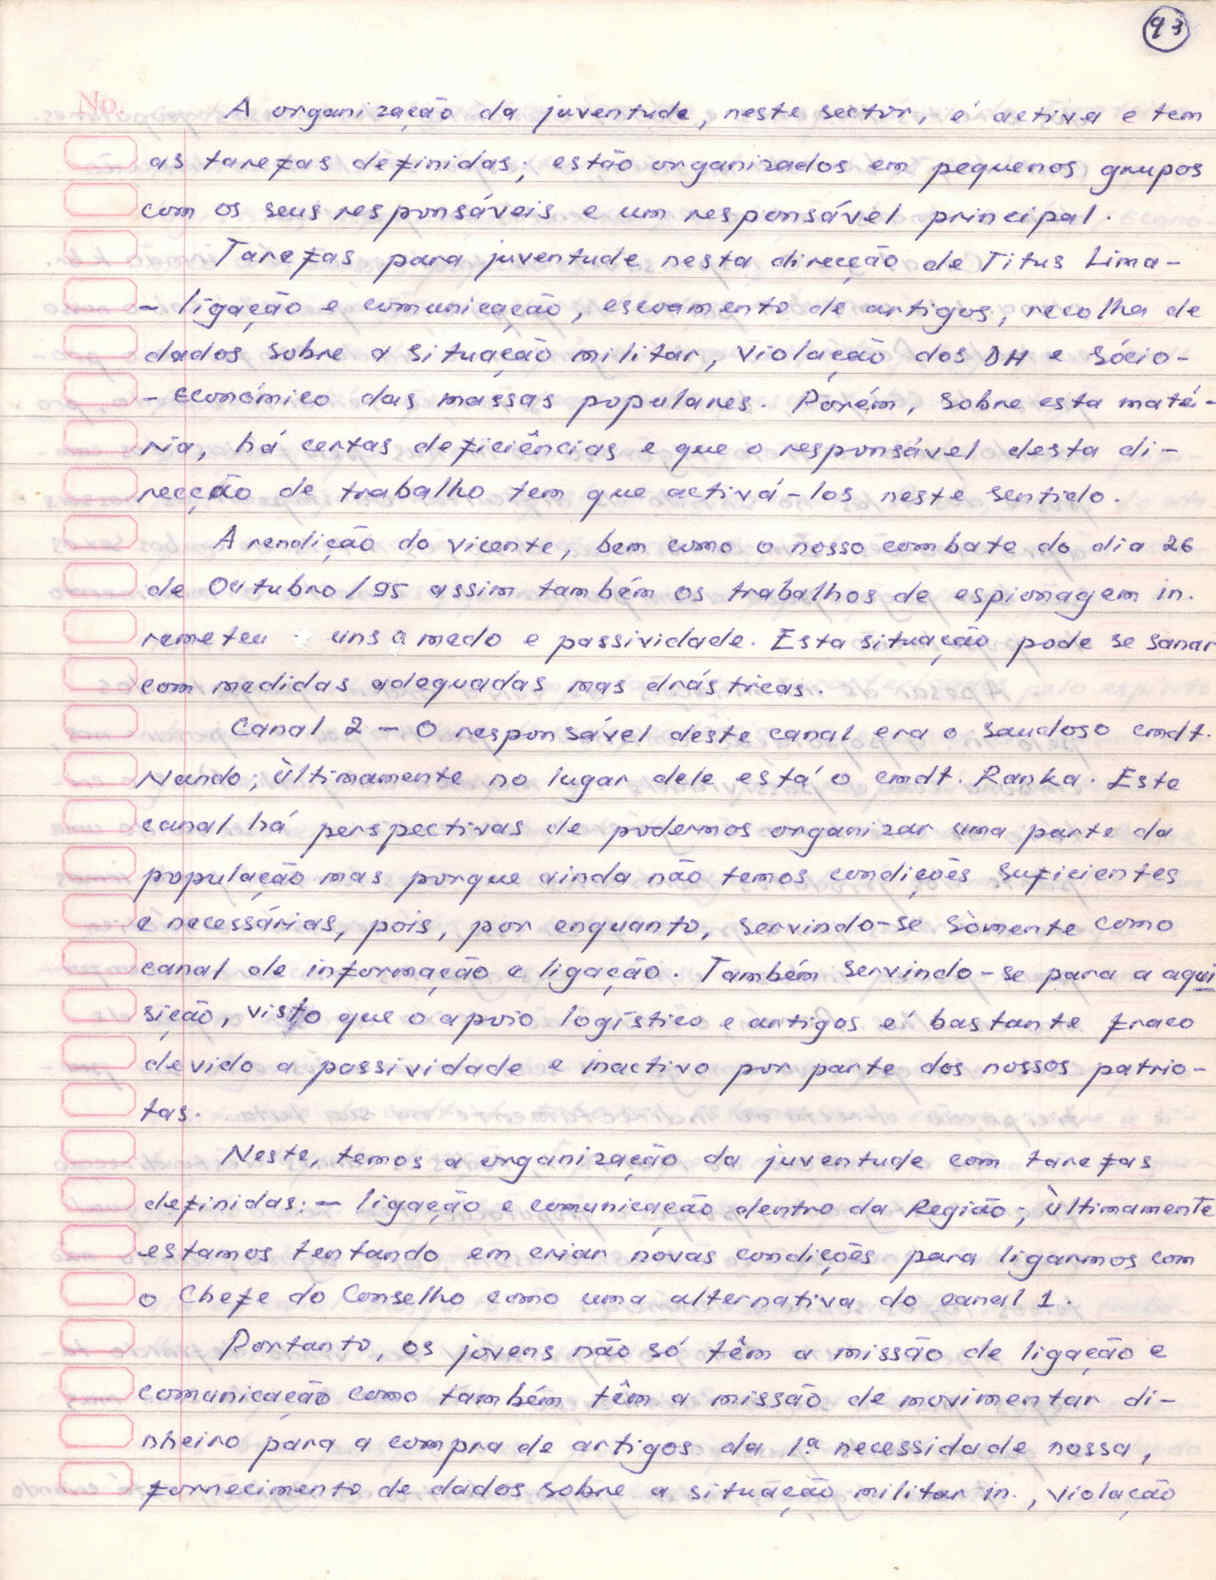 93
No.
A organização da juventude, neste sector, é activa e tem
as tarefas definidas; estão organizados em pequenos grupos
com os seus responsáveis e um responsável principal.
Tarefas para juventude nesta direcção de Titus Lima-
- ligação e comunicação, escoamento de artigos, recolha de
dados sobre a situação militar, violação dos DH e sócio-
- económico das massas populares. Porém, sobre esta maté-
ria, há certas deficiências e que o responsável desta di-
recção de trabalho tem que activá-los neste sentido.
A rendição do Vicente, bem como o nosso combate do dia 26
de Outubro/95 assim também os trabalhos de espionagem in.
remeteu uns a medo e passividade. Esta situação pode se sanar
com medidas adequadas mas drásticas.
Canal 2 - O responsável deste canal era o saudoso cmdt.
Nando; ùltimamente no lugar dele está o cmdt. Ranka. Este
canal há perspectivas de podermos organizar uma parte da
população mas porque ainda não temos condições suficientes
e necessárias, pois, por enquanto, servindo-se sòmente como
canal de informação e ligação. Também servindo-se para a aqui
sição, visto que o apoio logístico e artigos é bastante fraco
devido a passividade e inactivo por parte dos nossos patrio-
tas.
Neste, temos a organização da juventude com tarefas
definidas: - ligação e comunicação dentro da Região; ùltimamente
estamos tentando em criar novas condições para ligarmos com
o Chefe do Conselho como uma alternativa do canal 1.
Portanto, os jovens não só têm a missão de ligação e
comunicação como também têm a missão de movimentar di-
nheiro para a compra de artigos da 1ª necessidade nossa,
fornecimento de dados sobre a situação militar in., violação